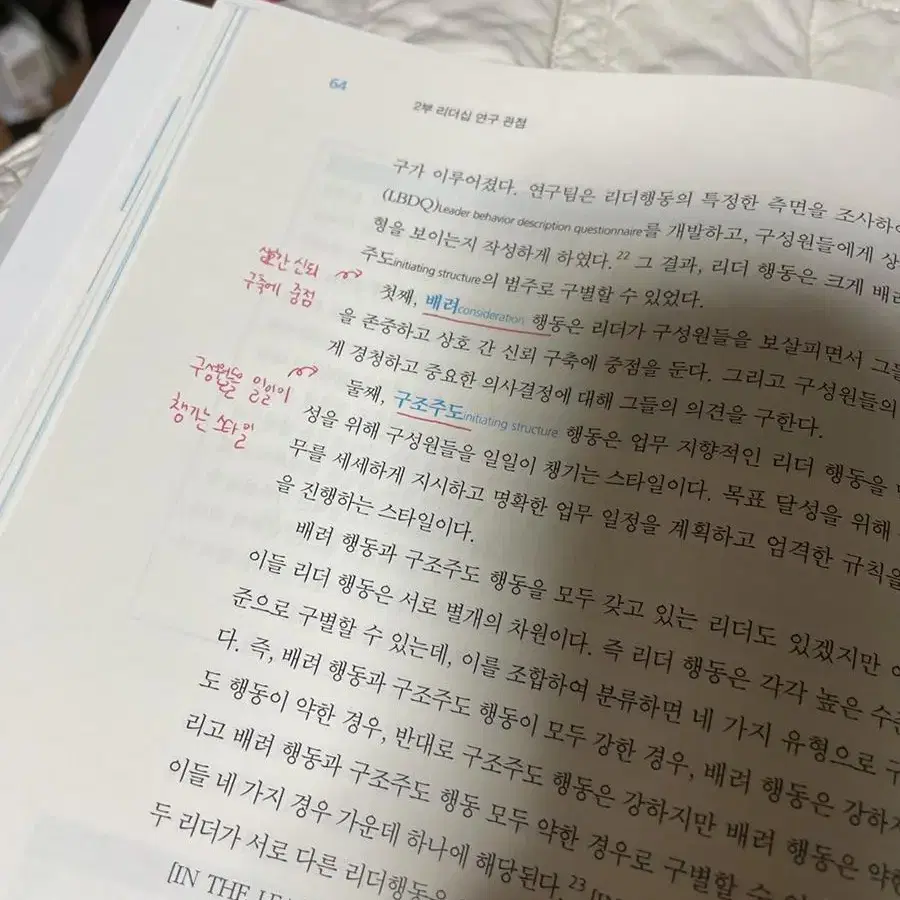 64
2부 리더십 연구 관점
구가 이루어졌다. 연구팀은 리더행동의 특정한 측면을 조사하
(LBDQ)Leader behavior description questionnaire를 개발하고, 구성원들에게 상
형을 보이는지 작성하게 하였다.22 그 결과, 리더 행동은 크게 배려
주도initiating structure의 범주로 구별할 수 있었다.
상호간 신뢰
구축에 중점
첫째, 배려consideration 행동은 리더가 구성원들을 보살피면서 그들
을 존중하고 상호 간 신뢰 구축에 중점을 둔다. 그리고 구성원들의
게 경청하고 중요한 의사결정에 대해 그들의 의견을 구한다.
구성원들을 일일이
챙기는 스타일
둘째, 구조주도initiating structure 행동은 업무 지향적인 리더 행동을
성을 위해 구성원들을 일일이 챙기는 스타일이다. 목표 달성을 위해
무를 세세하게 지시하고 명확한 업무 일정을 계획하고 엄격한 규칙을
을 진행하는 스타일이다.
배려 행동과 구조주도 행동을 모두 갖고 있는 리더도 있겠지만
이들 리더 행동은 서로 별개의 차원이다. 즉 리더 행동은 각각 높은 수
준으로 구별할 수 있는데, 이를 조합하여 분류하면 네 가지 유형으로 구
다. 즉, 배려 행동과 구조주도 행동이 모두 강한 경우, 배려 행동은 강하
도 행동이 약한 경우, 반대로 구조주도 행동은 강하지만 배려 행동은 약한
리고 배려 행동과 구조주도 행동 모두 약한 경우로 구별할 수
이들 네 가지 경우 가운데 하나에 해당된다.23
두 리더가 서로 다른 리더행동을
[IN THE